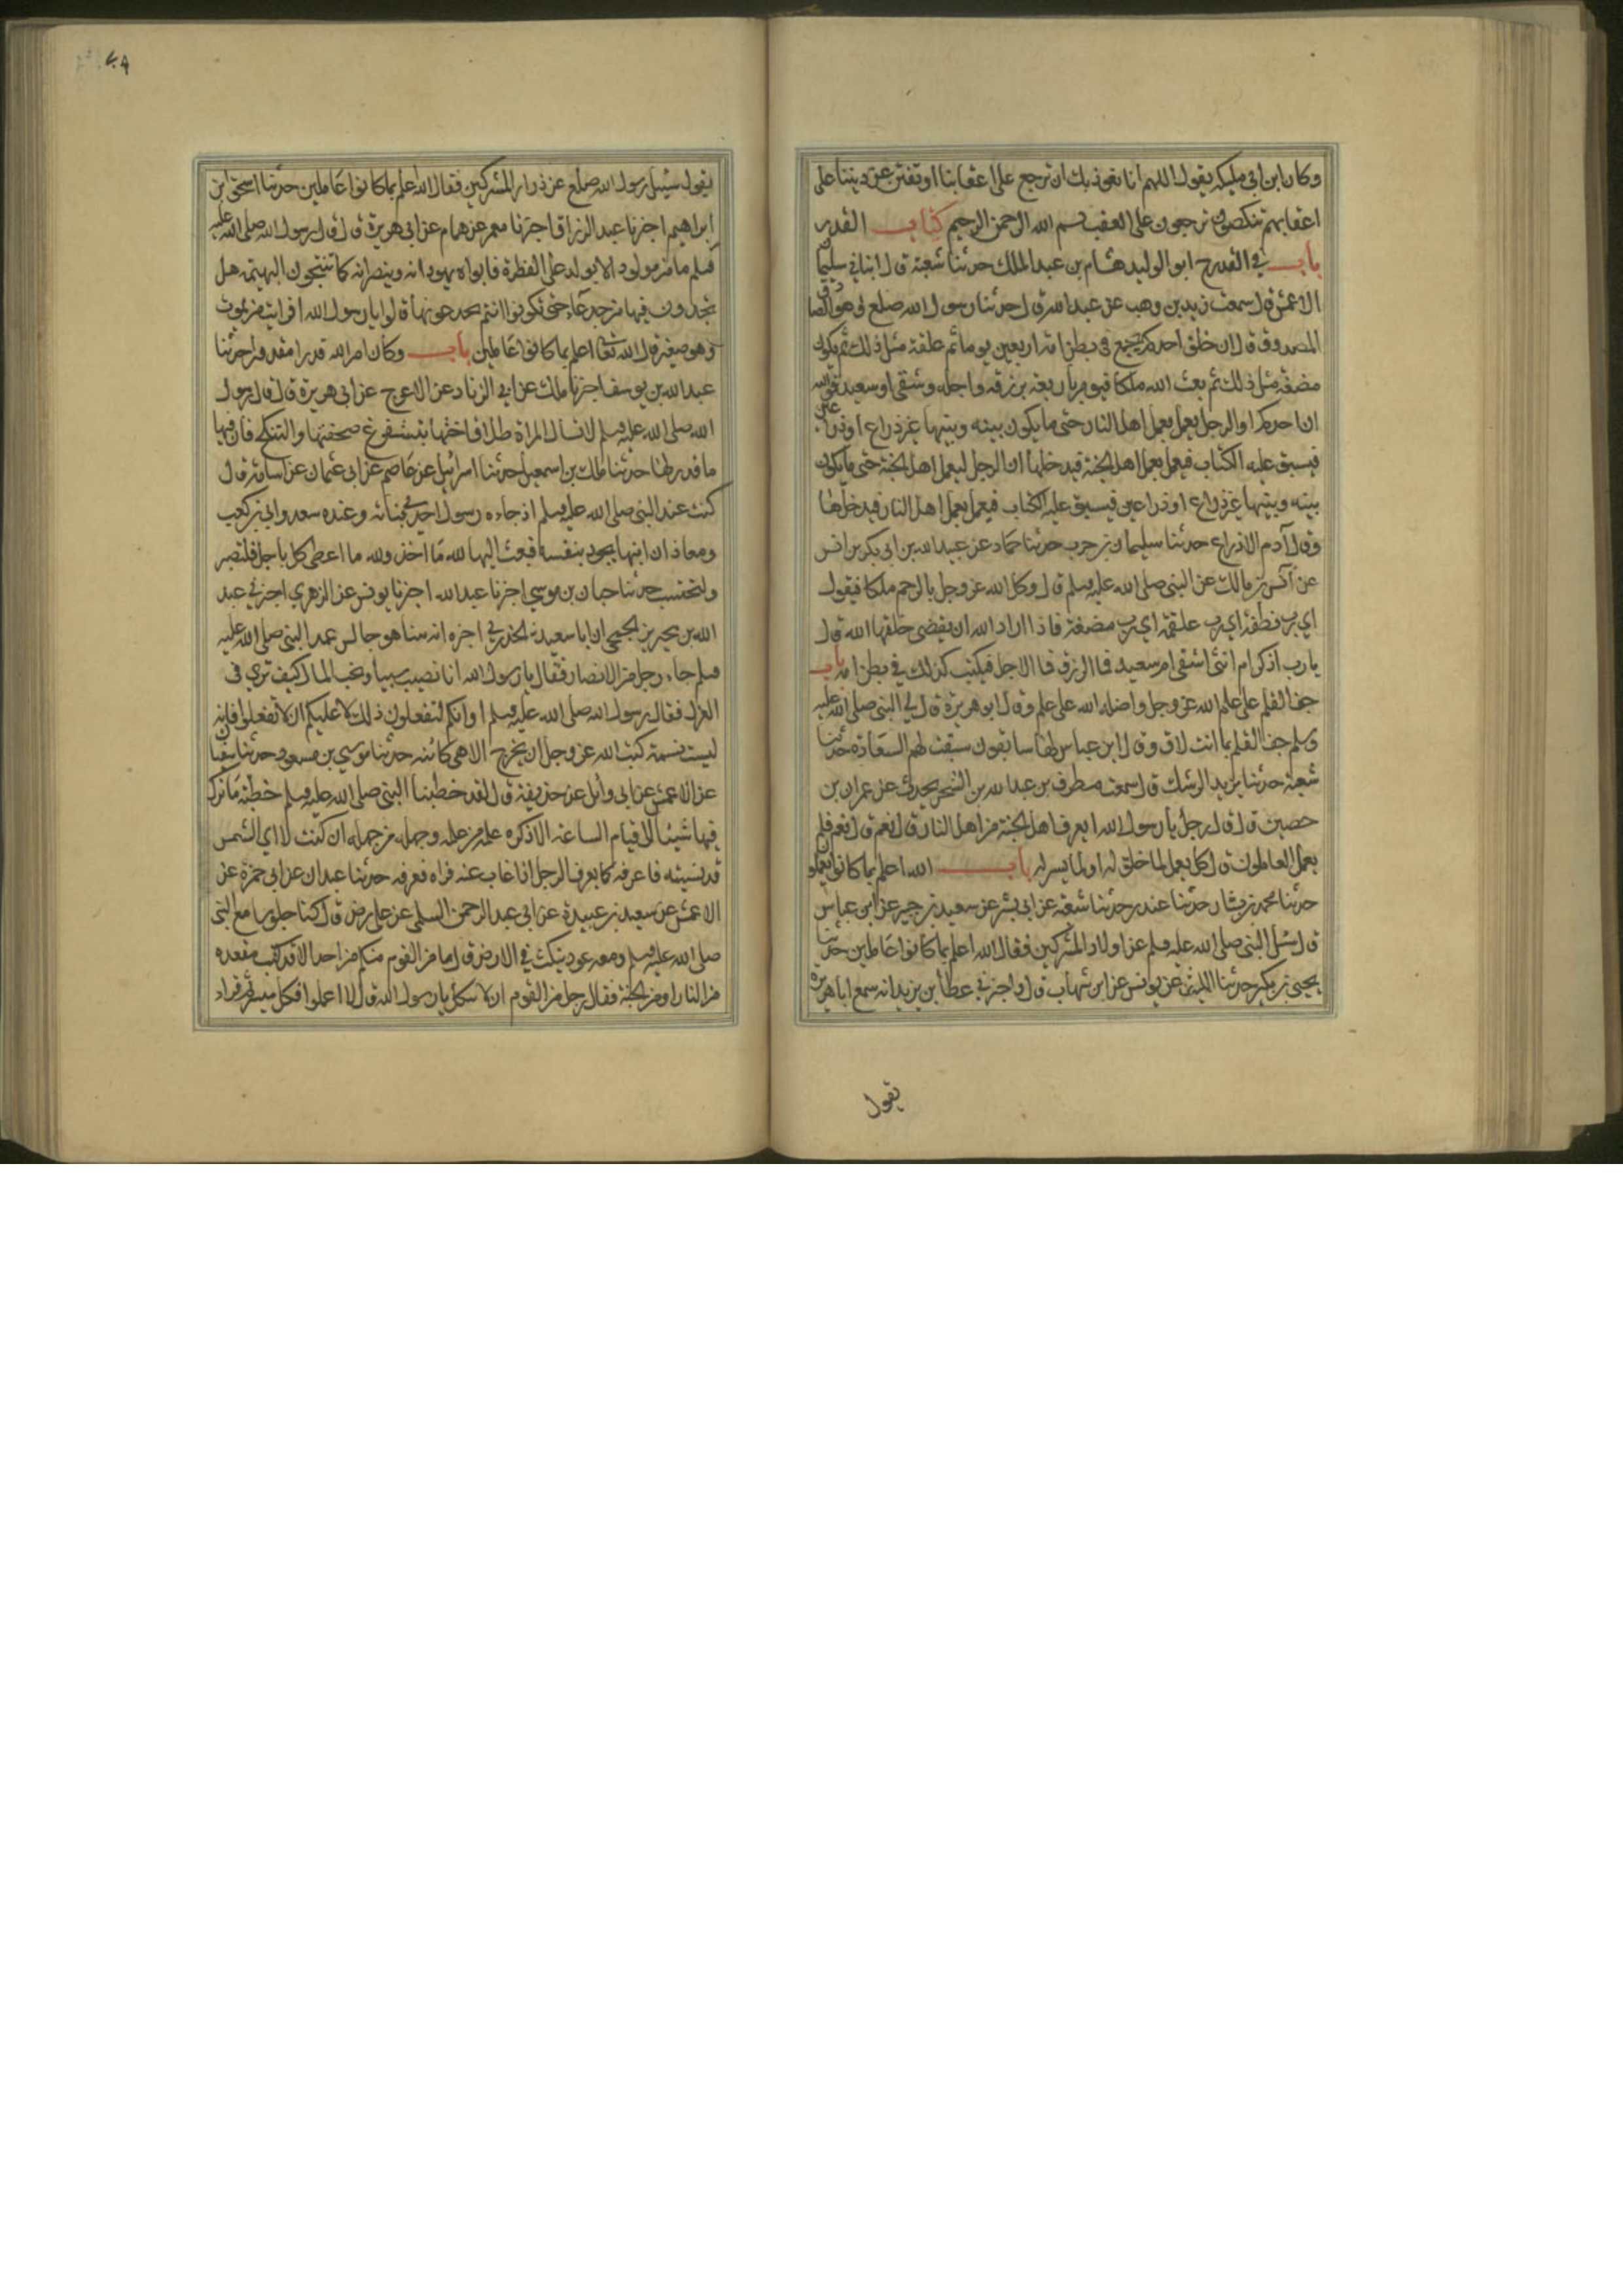 وكان ابن ابي مليكه يقول اللهم انا نعوذ بك ان نرجع على اعقابنا او نفتن عن ديننا على
اعقابهم تنكصون ترجعون على العقب بسم الله الرحمن الرحيم كتاب القدر
باب في القدر ح ابو الوليد هشام بن عبد الملك حدثنا شعبة قال انباني سليمان
الاعمش قال سمعت زيد بن وهب عن عبد الله قال حدثنا رسول الله صلعم وهو الصادق
المصدوق قال ان خلق احدكم يجمع في بطن امه اربعين يوما ثم علقة مثل ذلك ثم يكون
مضغة مثل ذلك ثم بعث الله ملكا فيومر باربعة برزقه واجله وشقي او سعيد فوالله
ان احدكم او الرجل يعمل بعمل اهل النار حتى ما يكون بينه وبينها غير ذراع او ذراعين
فيسبق عليه الكتاب فيعمل بعمل اهل الجنة فيدخلها ان الرجل ليعمل اهل الجنة حتى ما يكون
بينه وبينها غير ذراع او ذراعين فيسبق عليه الكتاب فيعمل بعمل اهل النار فيدخلها
وقال آدم الا ذراع حدثنا سليمان بن حرب حدثنا حماد عن عبيد الله بن ابي بكر بن انس
عن انس بن مالك عن النبي صلى الله عليه وسلم قال وكل الله عز وجل بالرحم ملكا فيقول
اي رب نطفة اي رب علقة اي رب مضغة فاذا اراد الله ان يقضي خلقها الله قال
يا رب اذكر ام انثى اشقي ام سعيد فما الرزق فما الاجل فيكتب كذلك في بطن امه باب
جف القلم على علم الله عز وجل واضله الله على علم وقال ابو هريرة قال لي النبي صلى الله عليه
وسلم جف القلم بما انت لاق وقال ابن عباس لها سابقون سبقت لهم السعادة حدثنا
شعبة حدثنا يزيد الرشك قال سمعت مطرف بن عبد الله بن الشخير يحدث عن عمران بن
حصين قال قال رجل يا رسول الله ايعرف اهل الجنة من اهل النار قال نعم قال نعم فلم
يعمل العاملون قال كل يعمل لما خلق له او لما يسر له باب الله اعلم بما كانوا يعملو
حدثنا محمد بن بشار حدثنا غندر حدثنا شعبة عن ابي بشر عن سعيد بن جبير عن ابن عباس
قال سئل النبي صلى الله عليه وسلم عن اولاد المشركين فقال الله اعلم بما كانوا عاملين حدثنا
يحيى بن بكير حدثنا الليث عن يونس عن ابن شهاب قال واخبرني عطا بن يزيد انه سمع ابا هريره
يقول
يقول سئيل رسول الله صلعم عن ذرار المشركين فقال الله اعلم بما كانوا عاملين حدثنا اسحق ابن
ابراهيم اخبرنا عبد الرزاق اخبرنا معمر عن همام عن ابي هريرة قال قال رسول الله صلى الله عليه
وسلم ما من مولود الا يولد على الفطرة فابواه يهودانه وينصرانه كما تنتجون البهيمة هل
تجدون فيها من جدعاء حتى تكونوا انتم تجدعونها قالوا يا رسول الله افرايت من يموت
وهو صغير قال الله تعالى اعلم بما كانوا عاملين باب وكان امر الله قدرا مقدورا حدثنا
عبد الله بن يوسف اخبرنا مالك عن ابي الزناد عن الاعرج عن ابي هريرة قال قال رسول
الله صلى الله عليه وسلم لا تسال المراة طلاق اختها تستفرغ صحفتها والتنكح فان فيها
ما قدر لها حدثنا مالك بن اسمعيل حدثنا اسرائيل عن عاصم عن ابي عثمان عن اسامة قال
كنت عند النبي صلى الله عليه وسلم اذ جاءه رسول احدى بناته وعنده سعد وابي بن كعب
ومعاذ ان ابنها يجود بنفسه فبعث اليها لله ما اخذ ولله ما اعطى كل باجل فلتصبر
ولتحتسب حدثنا حبان بن موسى اخبرنا عبد الله اخبرنا يونس عن الزهري اخبرني عبد
الله بن محيريز الجمحي ان ابا سعيد الخدري اخبره انه بينا هو جالس عند النبي صلى الله عليه
وسلم جاء رجل من الانصار فقال يا رسول الله انا نصيب سبيا ونحب المال كيف ترى في
العزل فقال رسول الله صلى الله عليه وسلم او انكم لتفعلون ذلك لا عليكم ان لا تفعلوا فانه
ليست نسمة كتب الله عز وجل ان يخرج الا هي كائنه حدثنا موسى بن مسعود حدثنا سفيان
عن الاعمش عن ابي وائل عن حذيفة قال لقد خطبنا النبي صلى الله عليه وسلم خطبة ما ترك
فيها شيئا الى قيام الساعة الا ذكره علمه من علمه وجهله من جهله ان كنت لا اي الشمس
قد نسيته فاعرفه كما يعرف الرجل اذا غاب عنه فراه فعرفه حدثنا عبدان عن ابي حمزة عن
الاعمش عن سعيد بن عبيدة عن ابي عبد الرحمن السلمي عن علي رض قال كنا جلوسا مع النبي
صلى الله عليه وسلم ومعه عود ينكث في الارض قال ما من القوم منكم من احد الا قد كتب مقعده
من النار او من الجنة فقال رجل من القوم الا نتكل يا رسول الله قال لا اعملوا فكل ميسر ثم قراء